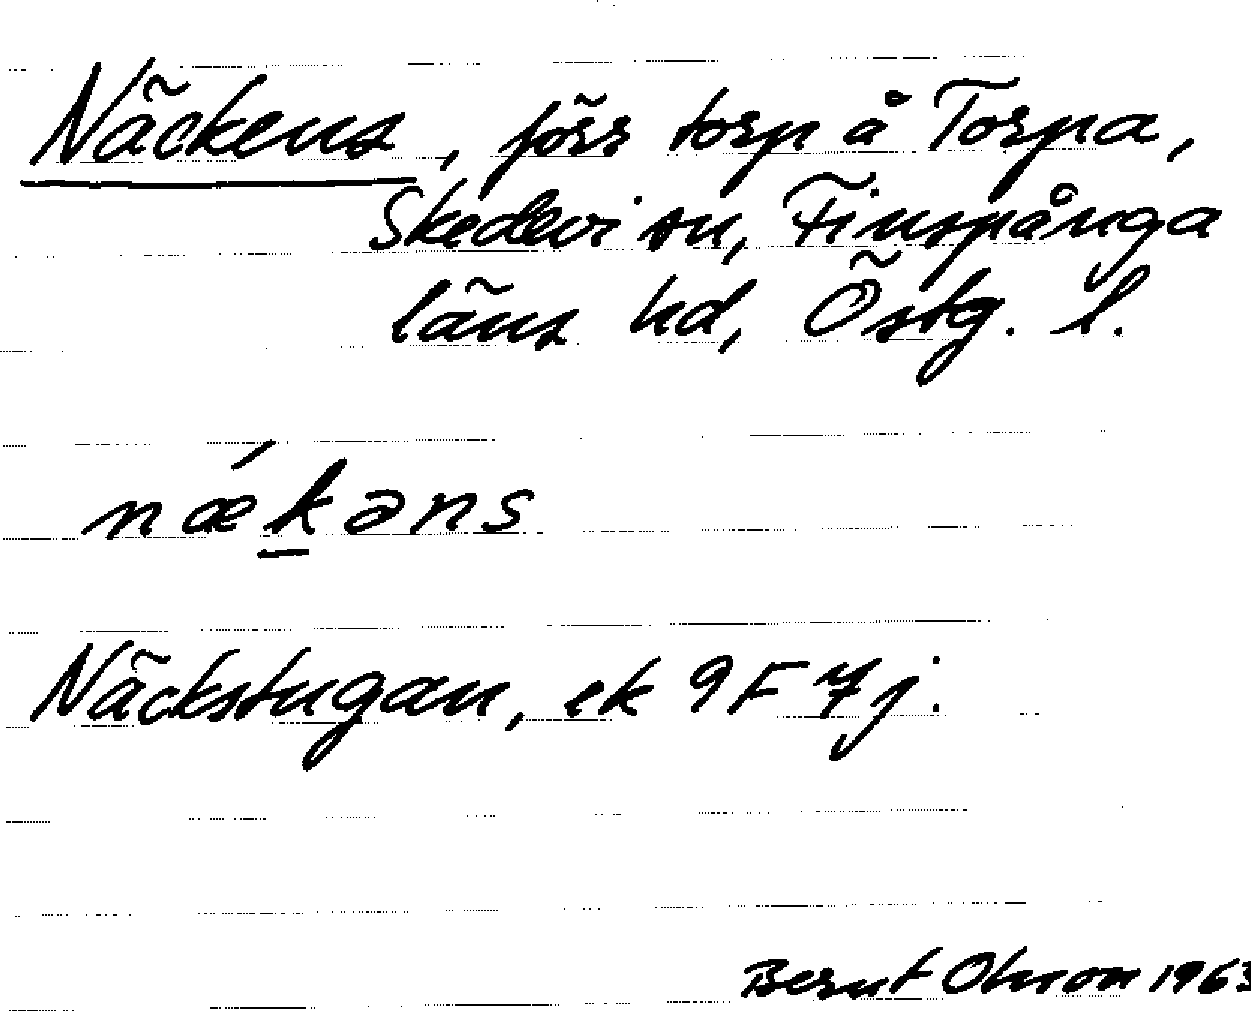 Näckens, förr torp å Torpa,
Skedevi sn, Finspånga
läns hd, Östg. l.
nǽk̲əns
Näckstugan, ek 9F 7j.
Bernt Olsson 1963